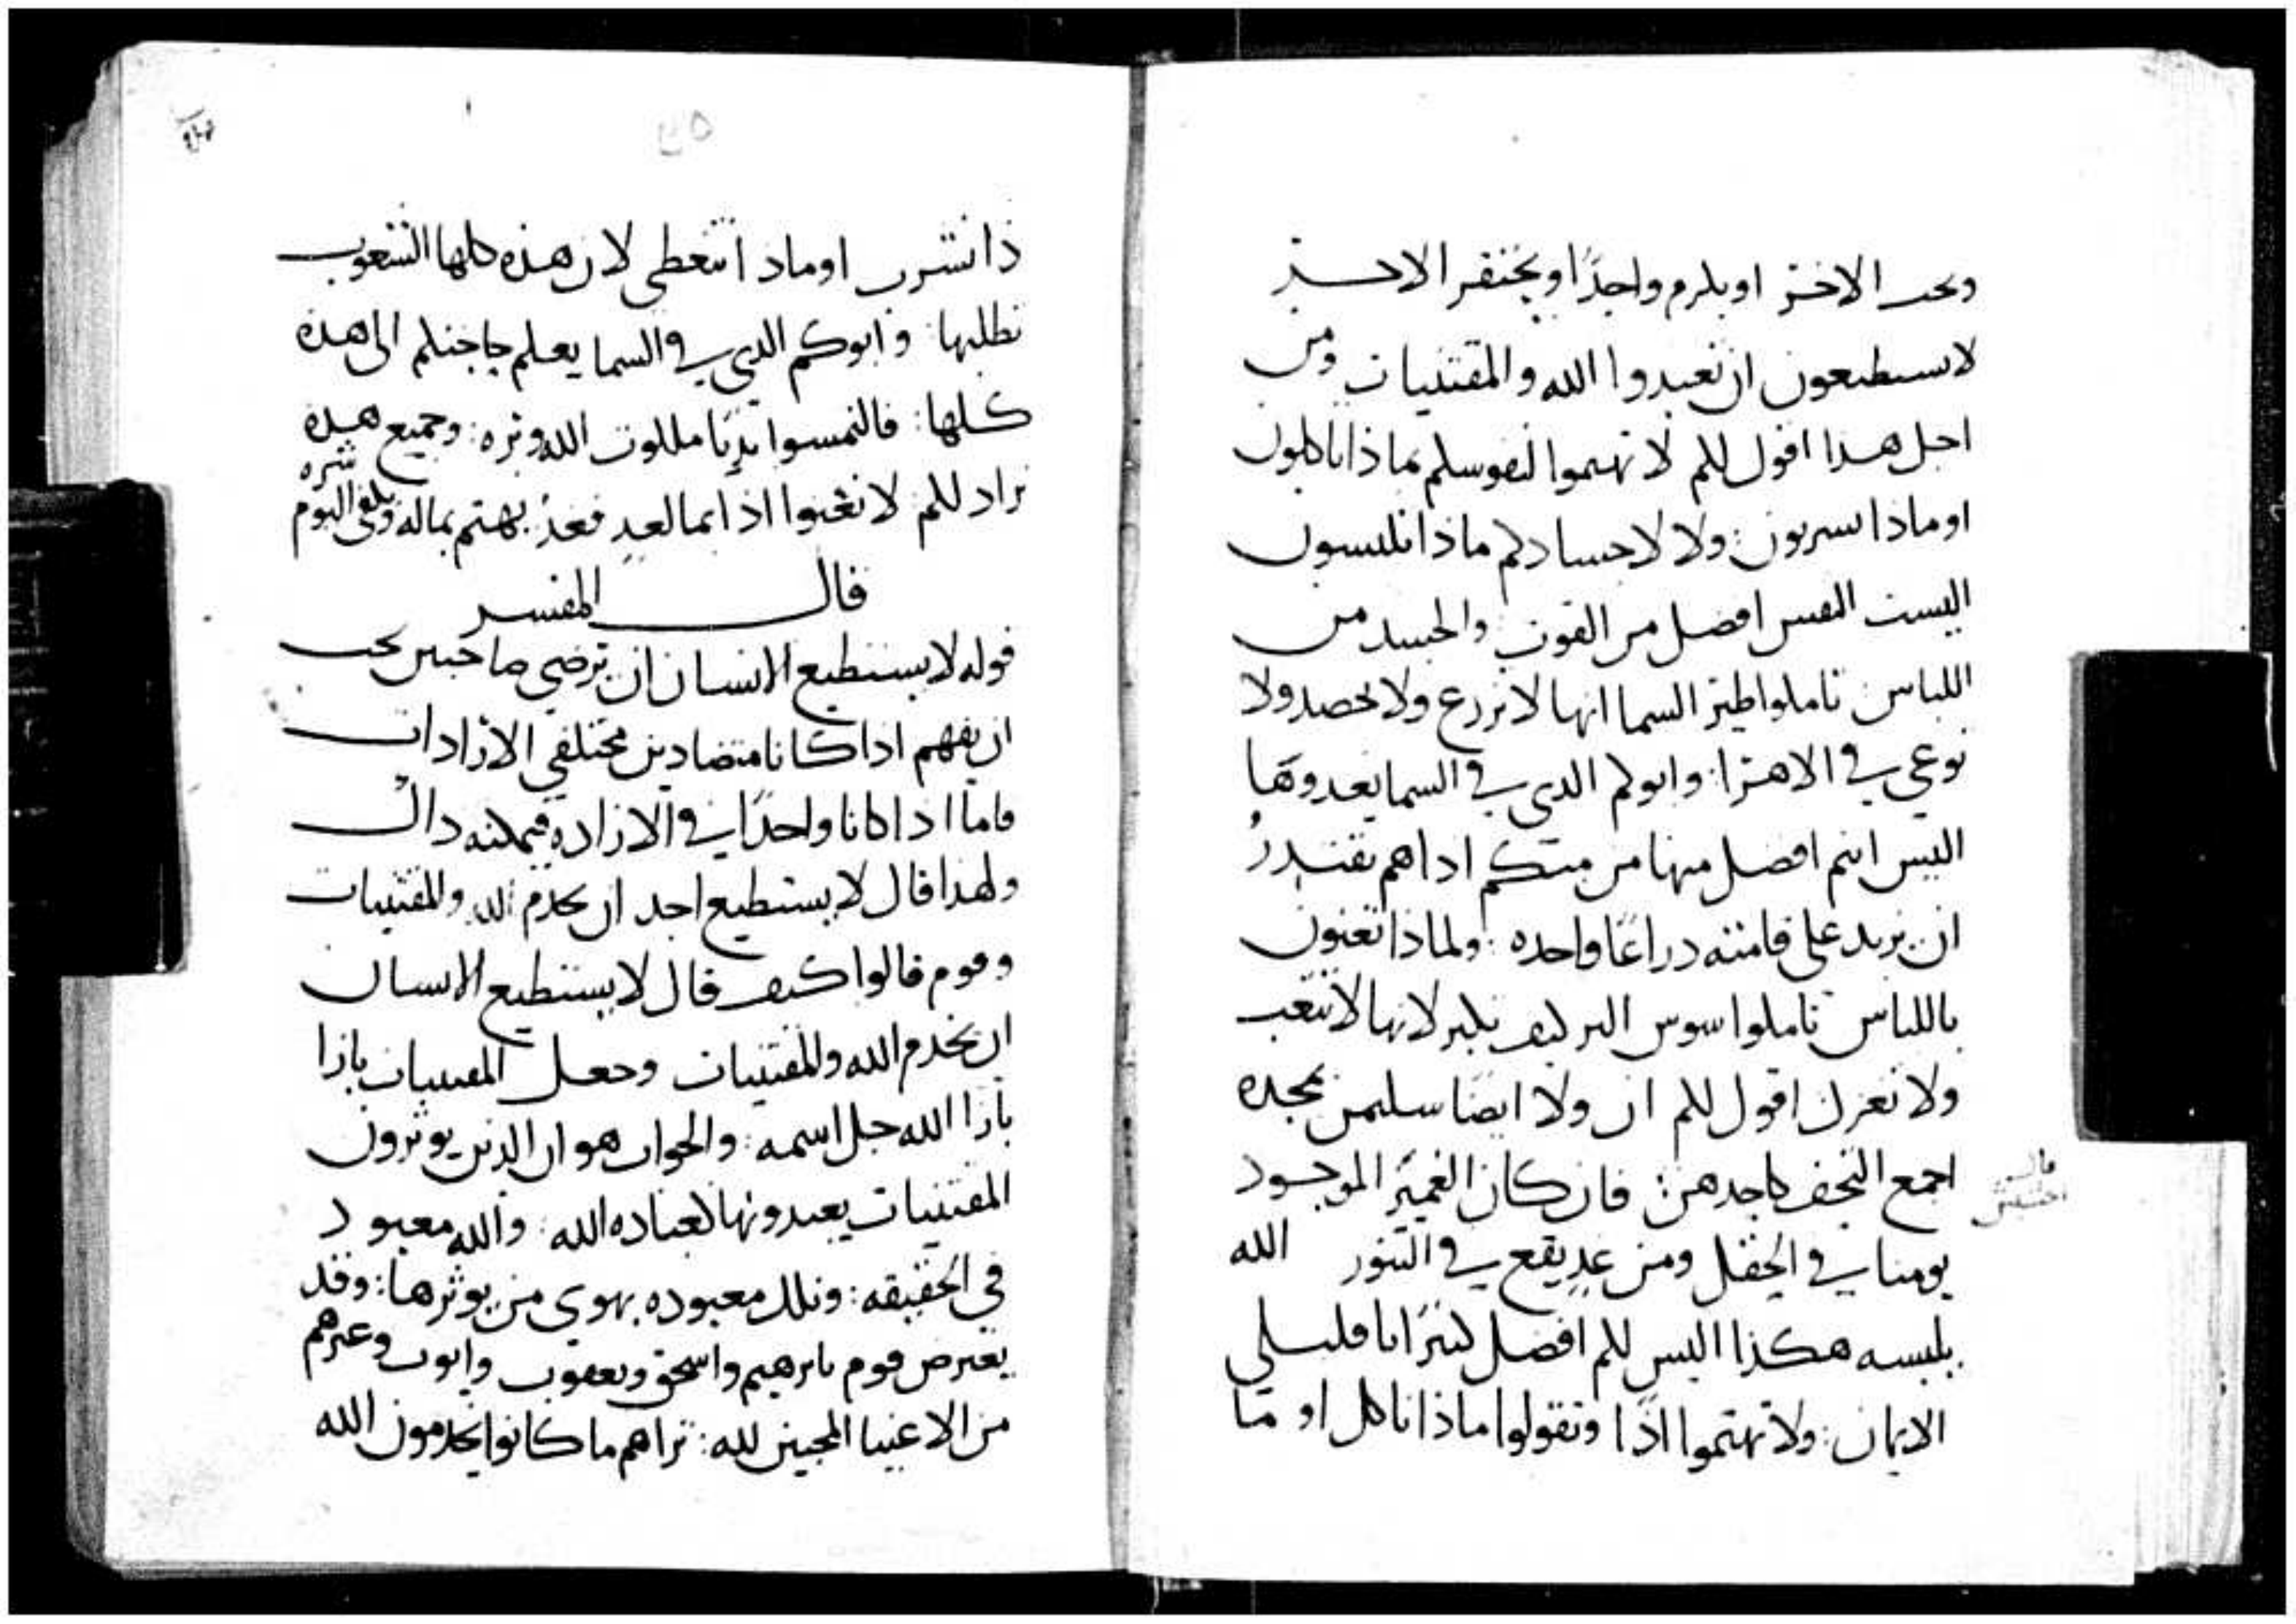 ويحب الاخر او يلزم واحدًا ويحتقر الاخر
لا تستطيعون ان تعبدوا الله والمقتنيات ومن
اجل هدا اقول لكم لا تهتموا لنفوسكم بماذا تاكلون
او ماذا تشربون: ولا لاجسادكم ماذا تلبسون
اليست النفس افضل من القوت والجسد من
اللباس تاملوا طير السما انها لا تزرع ولا تحصد ولا
توعي في الاهرا: وابوكم الدي في السما يغدوها
اليس انتم افضل منها من منكم اداهم يقتدرُ
ان يزيد على قامته دراعًا واحده: ولماذا تعنون
باللباس تاملوا سوس البر كيف يكبر لانها لا تتعب
ولا تغزل اقول لكم ان ولا ايضا سليمن بمجده
اجمع التحف كاحدهن: فان كان العمير الموجود
يومنا في الحقل ومن غدٍ يقع في التنور الله
يلبسه هكذا اليس لكم افضل كثيرًا يا قليلي
الايمان: ولا تهتموا اذًا وتقولوا ماذا ناكل او ما
قال
ذا نشرب او ماذا نتغطى لان هذه كلها الشعوب
تطلبها: وابوكم الدي في السما يعلم حاجتكم الى هده
كلها: فالتمسوا بديًا ملكوت الله وبره: وجميع هده
تزاد لكم لا تعنوا اذا بما لغدٍ فغدٌ يهتم بماله ويكفي اليوم
شره
قال المفسر
قوله لا يستطيع الانسان ان يرضي صاحبين يجب
ان يفهم ادا كانا متضادين مختلفي الارادات
فاما ادا كانا واحدًا في الاراده فيمكنه داك
ولهدا قال لا يستطيع احد ان يخدم الله والمقتنيات
وقوم قالوا كيف قال لا يستطيع الانسان
ان يخدم الله والمقتنيات وجعل المقتنيات بازا
بازا الله جل اسمه: والجواب هو ان الذين يوثرون
المقتنيات يعبدونها كعباده الله: والله معبود
في الحقيقه: وتلك معبوده بهوى من يوثرها: وقد
يعترض قوم بابرهيم واسحق ويعقوب وايوب وغيرهم
من الاغنيا المحبين لله: تراهم ما كانوا يخدمون الله